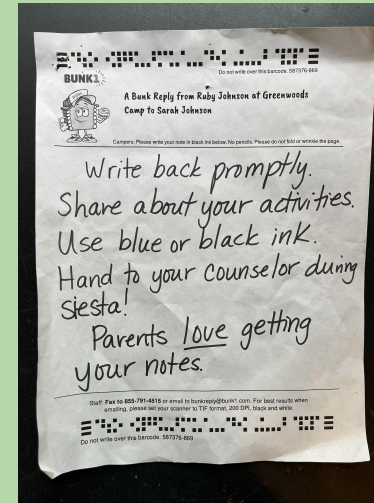 Do not write over this barcode. 587376-869
BUNK1
A Bunk Reply from Ruby Johnson at Greenwoods
Camp to Sarah Johnson
Campers: Please write your note in black ink below. No pencils. Please do not fold or wrinkle the page.
Write back promptly.
Share about your activities.
Use blue or black ink.
Hand to your counselor during
siesta!
Parents love getting
your notes.
Staff: Fax to 855-791-4515 or email to bunkreply@bunk1.com. For best results when
emailing, please set your scanner to TIF format, 200 DPI, black and white.
Do not write over this barcode. 587376-869